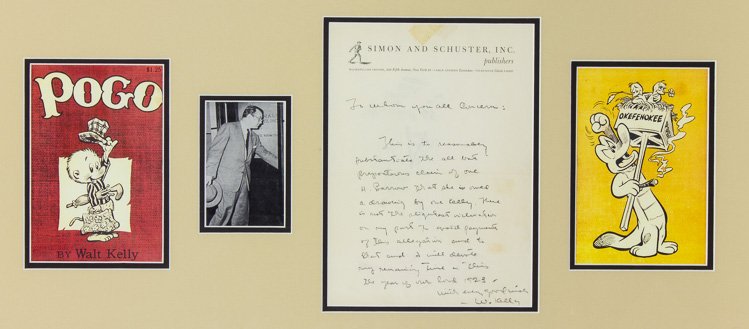 $1.25
POGO
BY Walt Kelly
SIMON AND SCHUSTER, INC.
publishers
To whom you all Concern:
This is to reasonably
substantiate the all but
preposterous claim of one
A. Barrow that she is owed
a drawing by one Kelly. There
is not the slightest
on my part to avoid payment
of this allegation and to
that end I will devote
any remaining time in this
the year of our lord 1953
with every good wish
W. Kelly
OKEFENOKEE